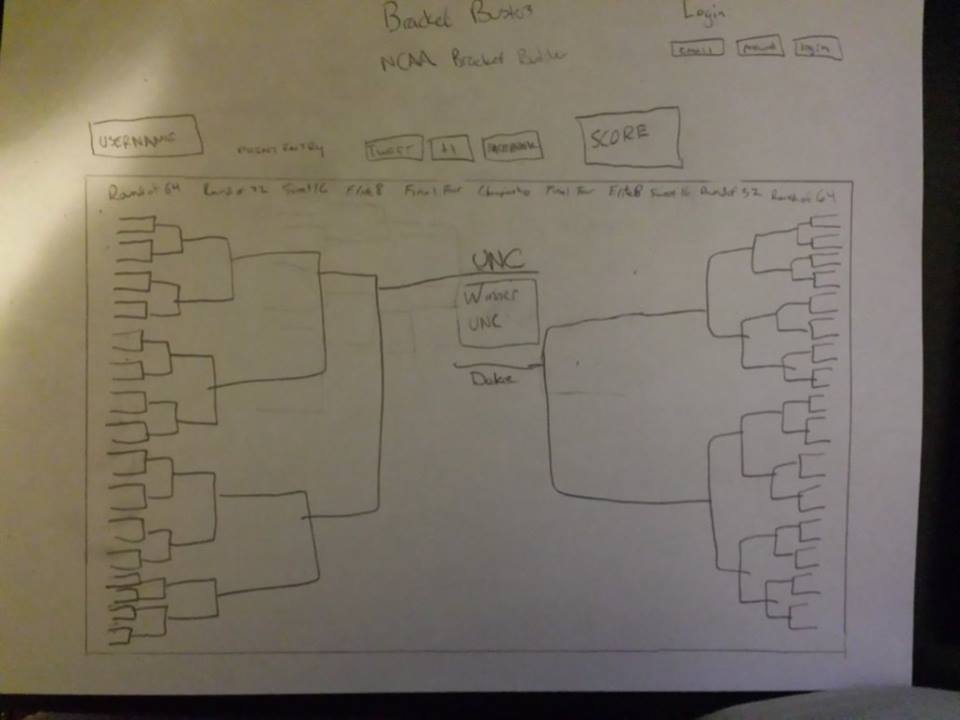 Bracket Busters
Login
NCAA Bracket Builder
email
login
USERNAME
PRINT ENTRY
TWEET
+1
FACEBOOK
SCORE
Round of 64 Round of 32 Sweet 16 Elite 8 Final Four Championship Final Four Elite 8 Sweet 16 Round of 32 Round of 64
UNC
Winner
UNC
Duke